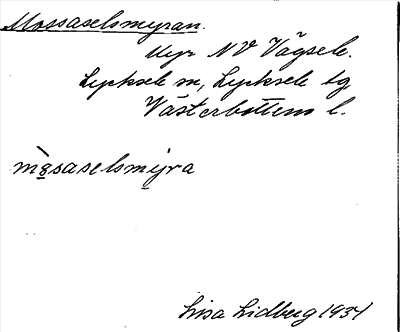 Mossaselsmyran.
Myr NV Vägsele.
Lycksele sn, Lycksele tg
Västerbottens l.
mòsaselsmyra
Lisa Lidberg 1934